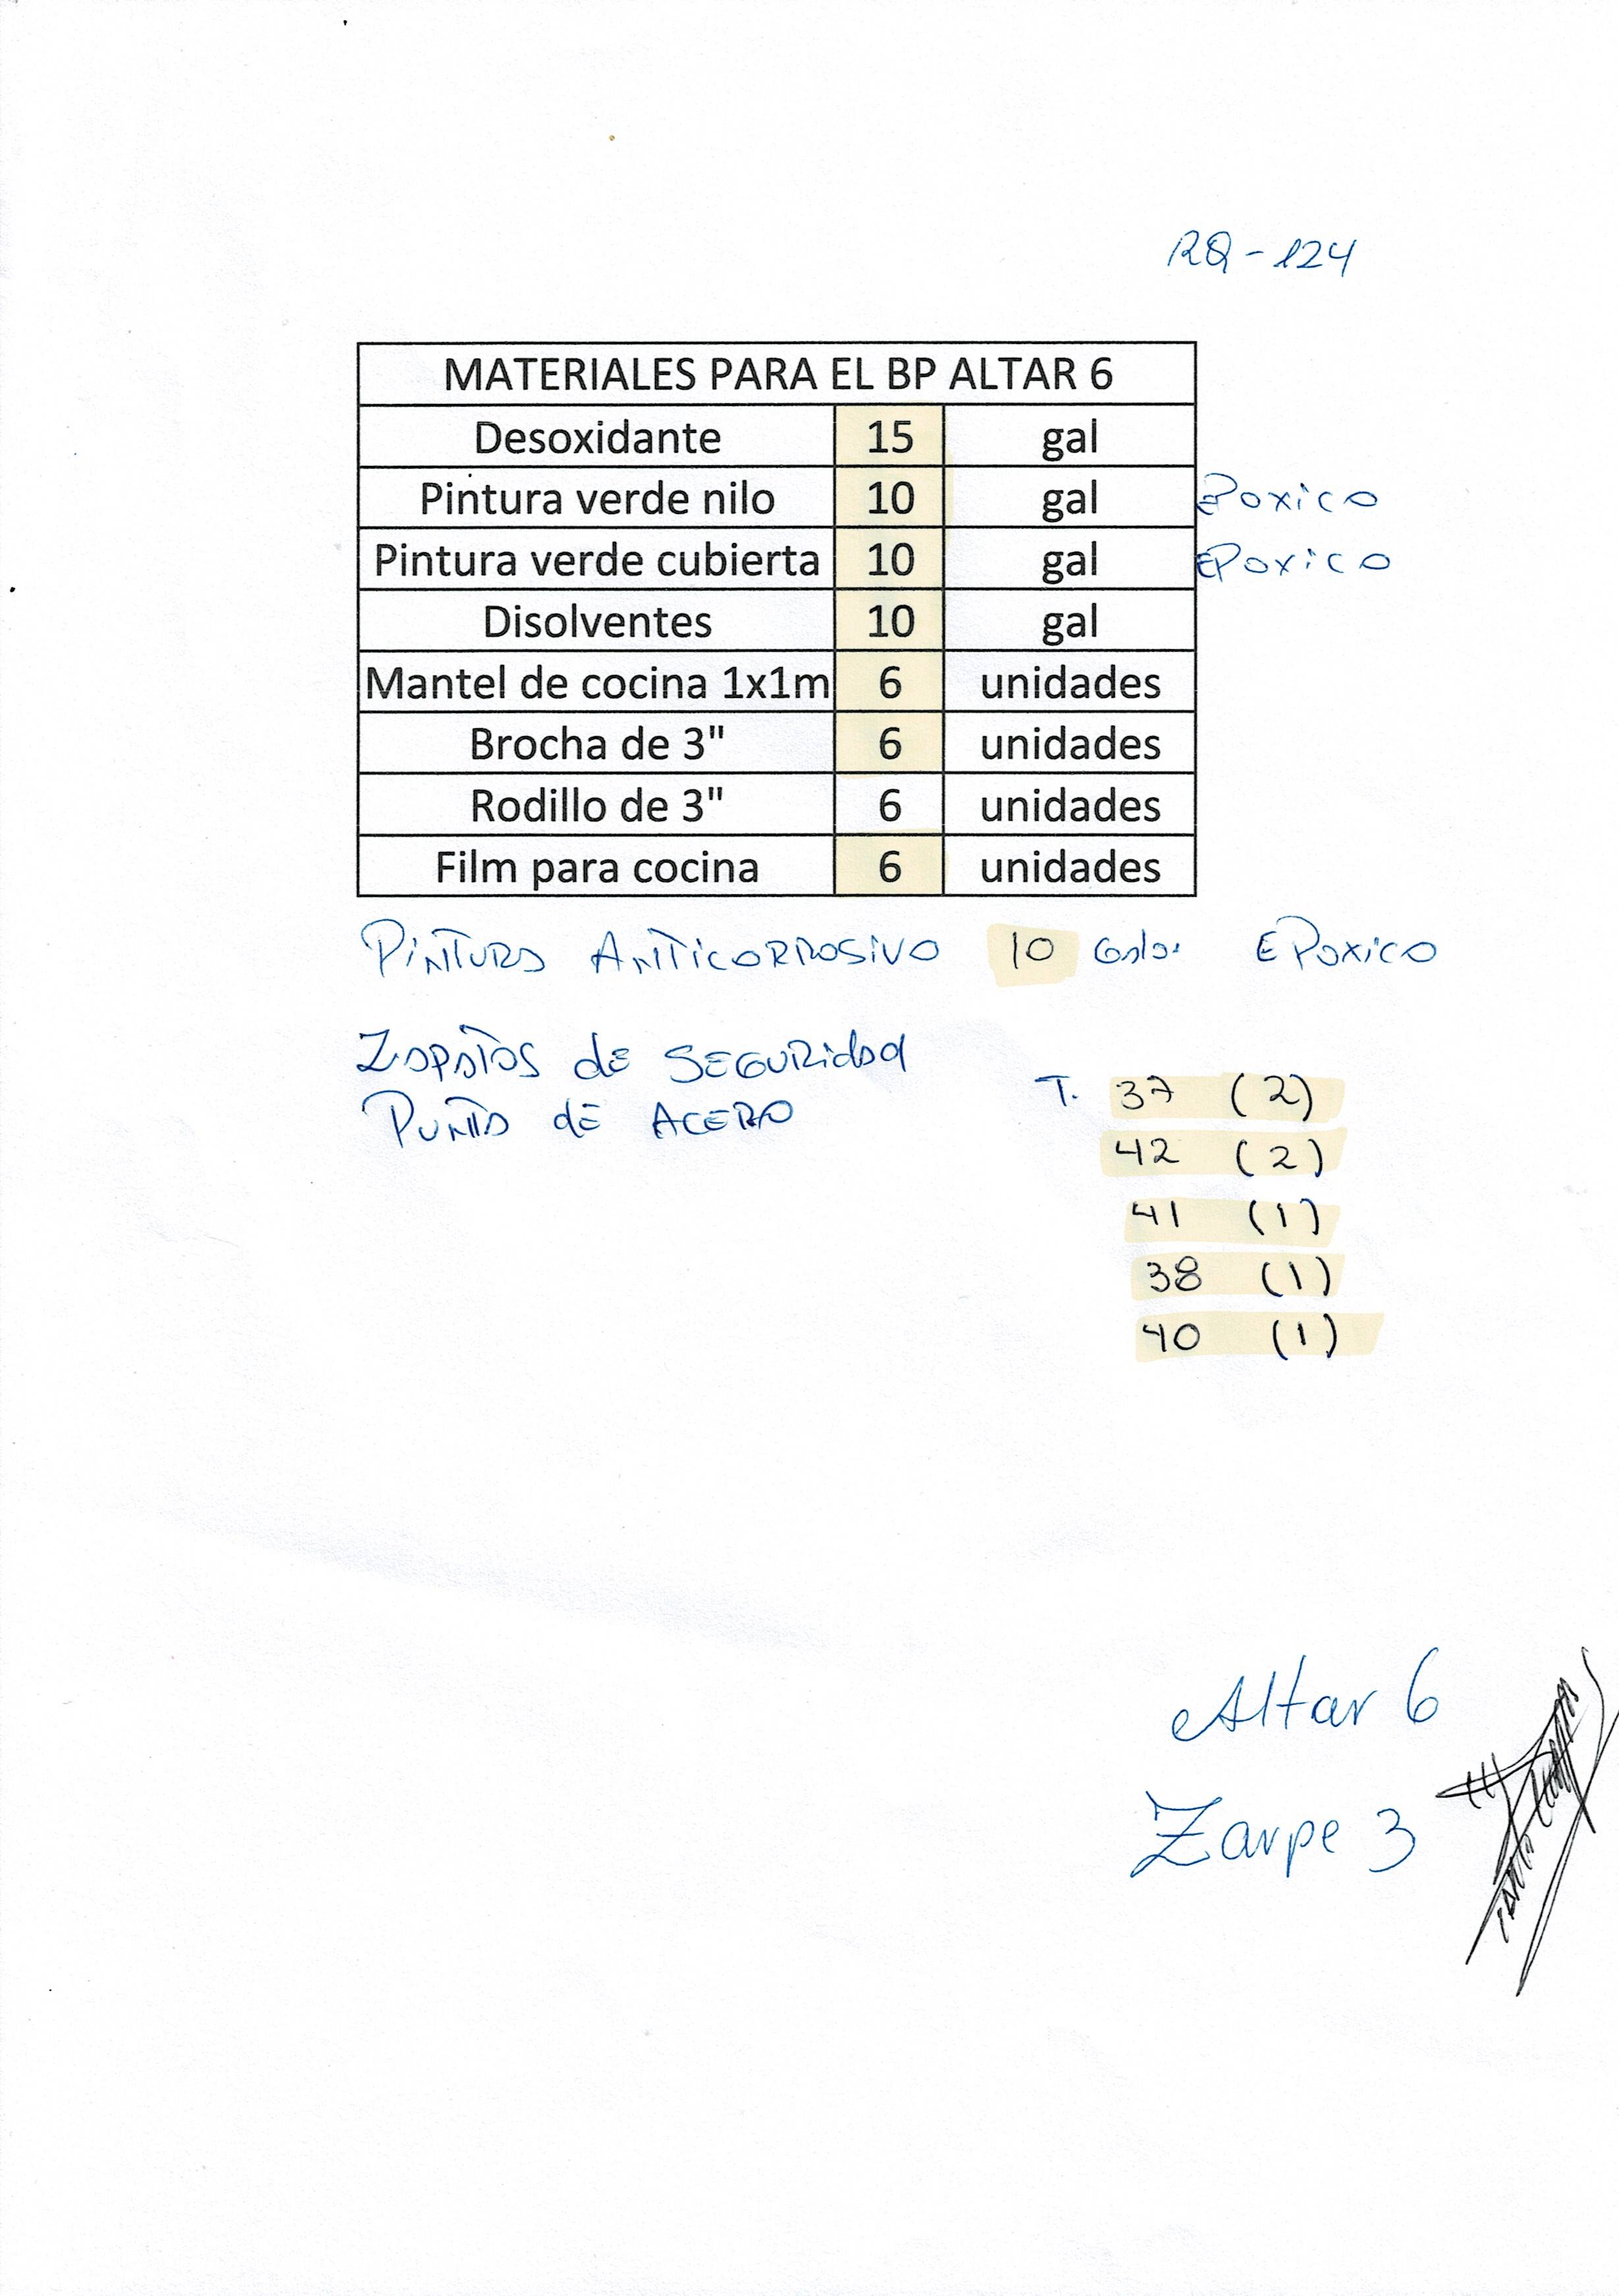 RQ-124
MATERIALES PARA EL BP ALTAR 6
Desoxidante 15 gal
Pintura verde nilo 10 gal EPOXICO
Pintura verde cubierta 10 gal EPOXICO
Disolventes 10 gal
Mantel de cocina 1x1m 6 unidades
Brocha de 3" 6 unidades
Rodillo de 3" 6 unidades
Film para cocina 6 unidades
PINTURA ANTICORROSIVO 10 EPOXICO
ZAPATOS de SEGURIDAD
PUNTA dE ACERO
T. 37 (2)
42 (2)
41 (1)
38 (1)
40 (1)
Altar 6
Zarpe 3